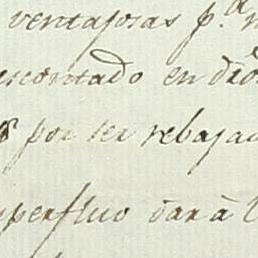 ventajosas p.a
escontado en dro
por ser rebaja
perfluo dará à